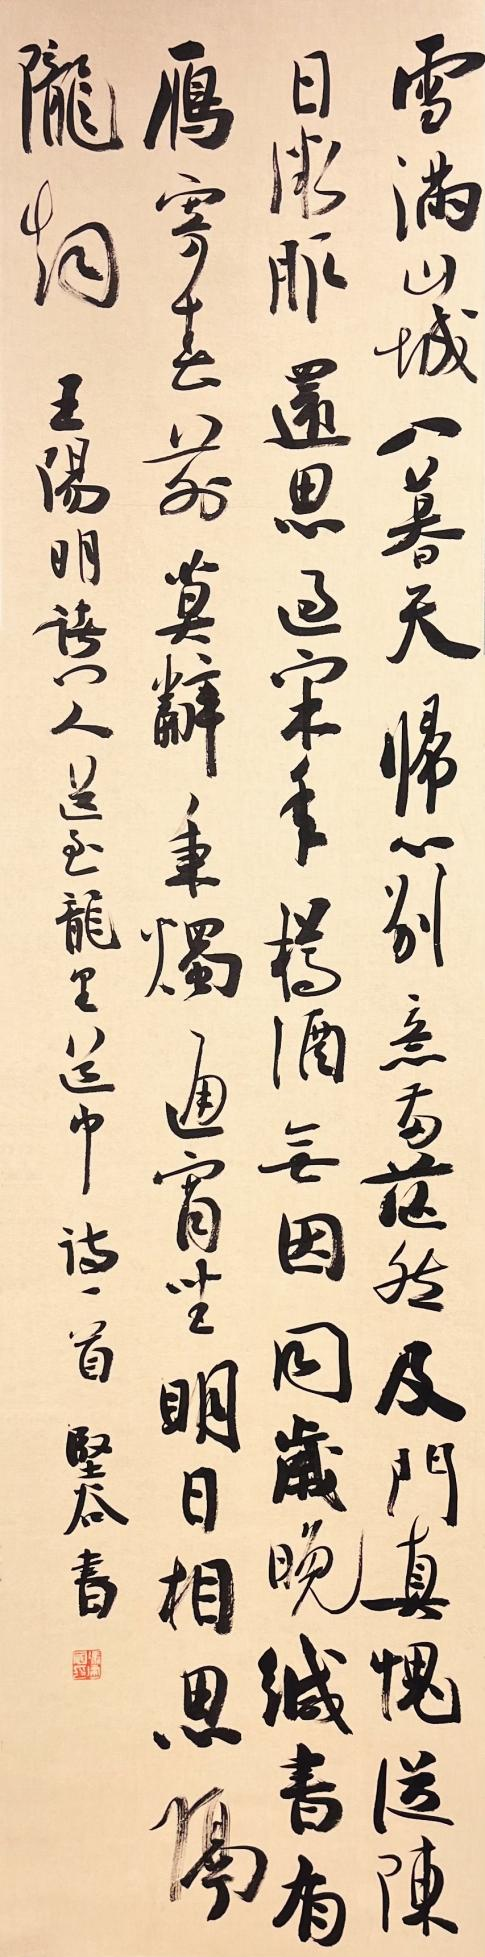 雪滿山城入暮天歸心別意兩茫然及門真愧從陳
日微服還思過宋年樽酒無因同歲晚緘書有
鴈寄春前莫辭秉燭通宵坐明日相思隔
隴烟 王陽明諸門人送至龍里道中詩一首 堅谷書